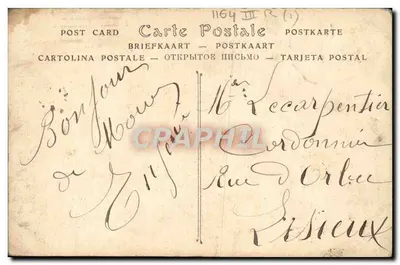 1164 III R (1)
POST CARD Carte Postale POSTKARTE
BRIEFKAART — POSTKAART
CARTOLINA POSTALE — ОТКРЫТОЕ ПИСЬМО — TARJETA POSTAL
Bonjour
de
Lecarpentier
CARPHIL
Cordonnier
Rue d'Orbec
Lisieux